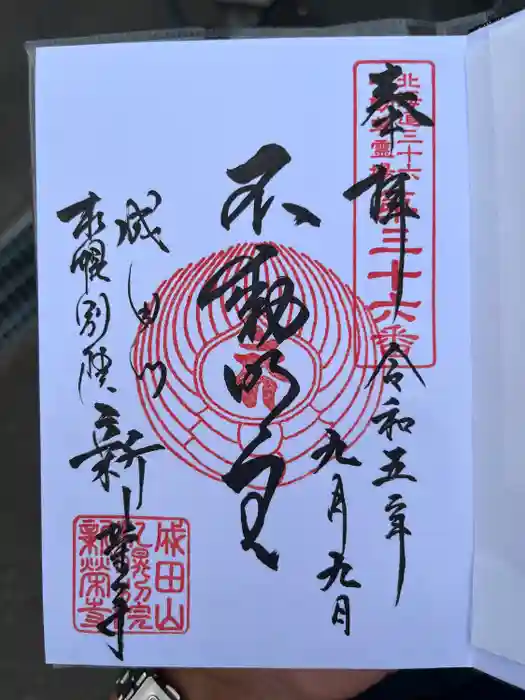 奉拝
令和五年
九月九日
不動明王
成田山
札幌別院
新栄寺
北海道三十六
第三十六番
成田山
札幌別院
新榮寺